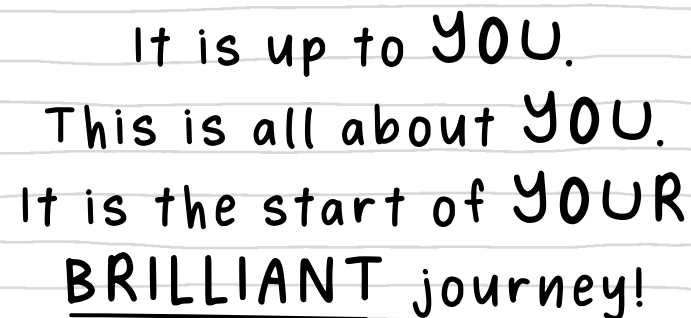 It is up to YOU.
This is all about YOU.
It is the start of YOUR
BRILLIANT journey!